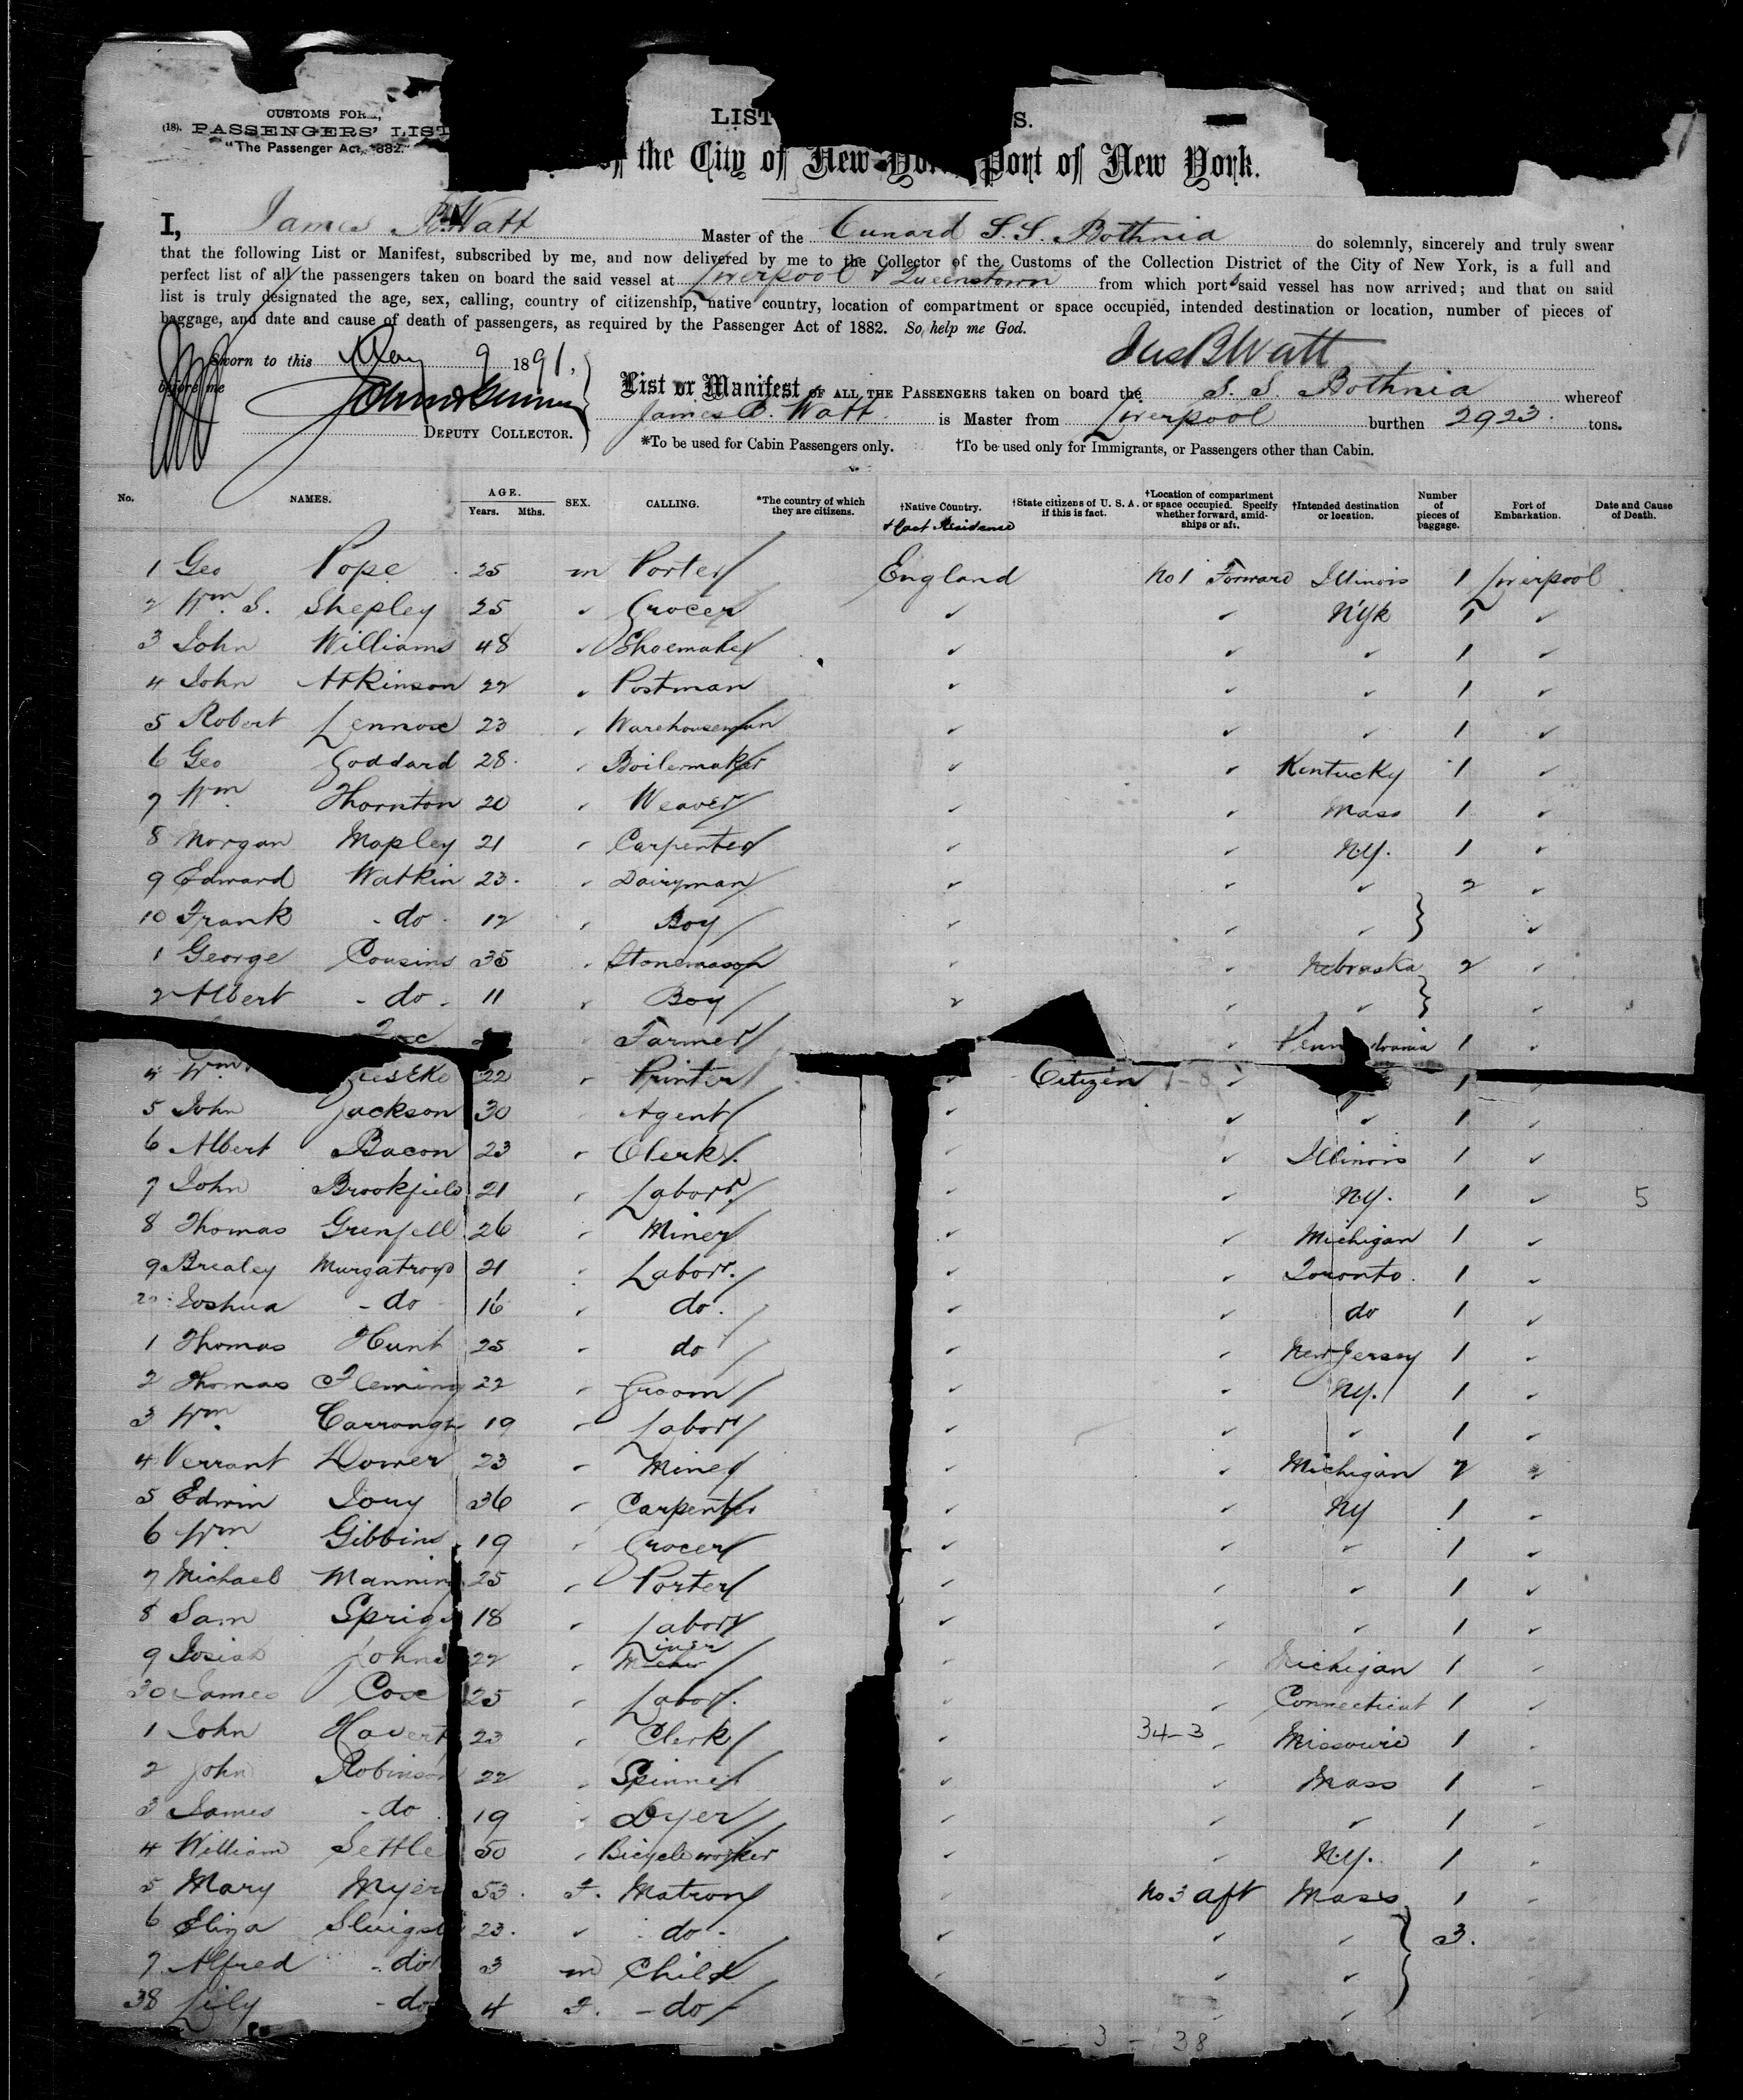 CUSTOMS
(18). PASSENGERS' LIST
"The Passenger Act, 1882."
LIST
of the City of New York, Port of New York.
I, James B. Watt Master of the Cunard S.S. Bothnia do solemnly, sincerely and truly swear
that the following List or Manifest, subscribed by me, and now delivered by me to the Collector of the Customs of the Collection District of the City of New York, is a full and
perfect list of all the passengers taken on board the said vessel at Liverpool & Queenstown from which ports said vessel has now arrived; and that on said
list is truly designated the age, sex, calling, country of citizenship, native country, location of compartment or space occupied, intended destination or location, number of pieces of
baggage, and date and cause of death of passengers, as required by the Passenger Act of 1882. So help me God.
Sworn to this May 9 1891, Jas B Watt
before me
List or Manifest OF ALL THE PASSENGERS taken on board the S. S. Bothnia whereof
James B. Watt is Master from Liverpool burthen 2923 tons.
DEPUTY COLLECTOR.
*To be used for Cabin Passengers only. †To be used only for Immigrants, or Passengers other than Cabin.
No. NAMES. AGE. Years. Mths. SEX. CALLING. *The country of which they are citizens. †Native Country. & Last Residence †State citizens of U. S. A. if this is fact. †Location of compartment or space occupied. Specify whether forward, amidships or aft. †Intended destination or location. Number of pieces of baggage. Port of Embarkation. Date and Cause of Death.
1 Geo Pope 25 m Porter England No 1 Forward Illinois 1 Liverpool
2 Wm. S. Shepley 25 Grocer NYk 1
3 John Williams 48 Shoemaker 1
4 John Atkinson 22 Postman 1
5 Robert Lennox 23 Warehouseman 1
6 Geo Goddard 28 Boilemaker Kentucky 1
7 Wm Thornton 20 Weaver Mass 1
8 Morgan Mapley 21 Carpenter N.Y. 1
9 Edward Watkin 23 Dairyman 2
10 Frank - do - 12 Boy
1 George Cousins 35 Stonemason Nebraska 2
2 Albert - do - 11 Boy
Farmer 1
4 Wm 22 Printer Citizen 1
5 John Jackson 30 Agent 1
6 Albert Bacon 23 Clerk Illinois 1
7 John Brookfield 21 Labor N.Y. 1 5
8 Thomas Grenfell 26 Miner Michigan 1
9 Brealey Murgatroyd 21 Labor. Toronto 1
20 Joshua - do 16 do. do 1
1 Thomas Hunt 25 do New Jersey 1
2 Thomas Fleming 22 Groom NY. 1
3 Wm. 19 Labor 1
4 Verrant Dower 23 Miner Michigan 2
5 Edwin Jory 36 Carpenter NY 1
6 Wm Gibbins 19 Grocer 1
7 Michael Manning 25 Porter 1
8 Sam 18 Labor 1
9 Josiah Johns 22 Miner Michigan 1
30 James Cox 25 Labor. Connecticut 1
1 John 23 Clerk 34-3 Missouri 1
2 John Robinson 22 Spinner Mass 1
3 James - do 19 Dyer 1
4 William Settle 50 Bicycle worker N.Y. 1
5 Mary Myer 53 F. Matron No 3 aft Mass 1
6 Eliza 23 do - 3.
7 Alfred - do 3 m Child
38 Lily - do 4 F. - do -
3 - 38